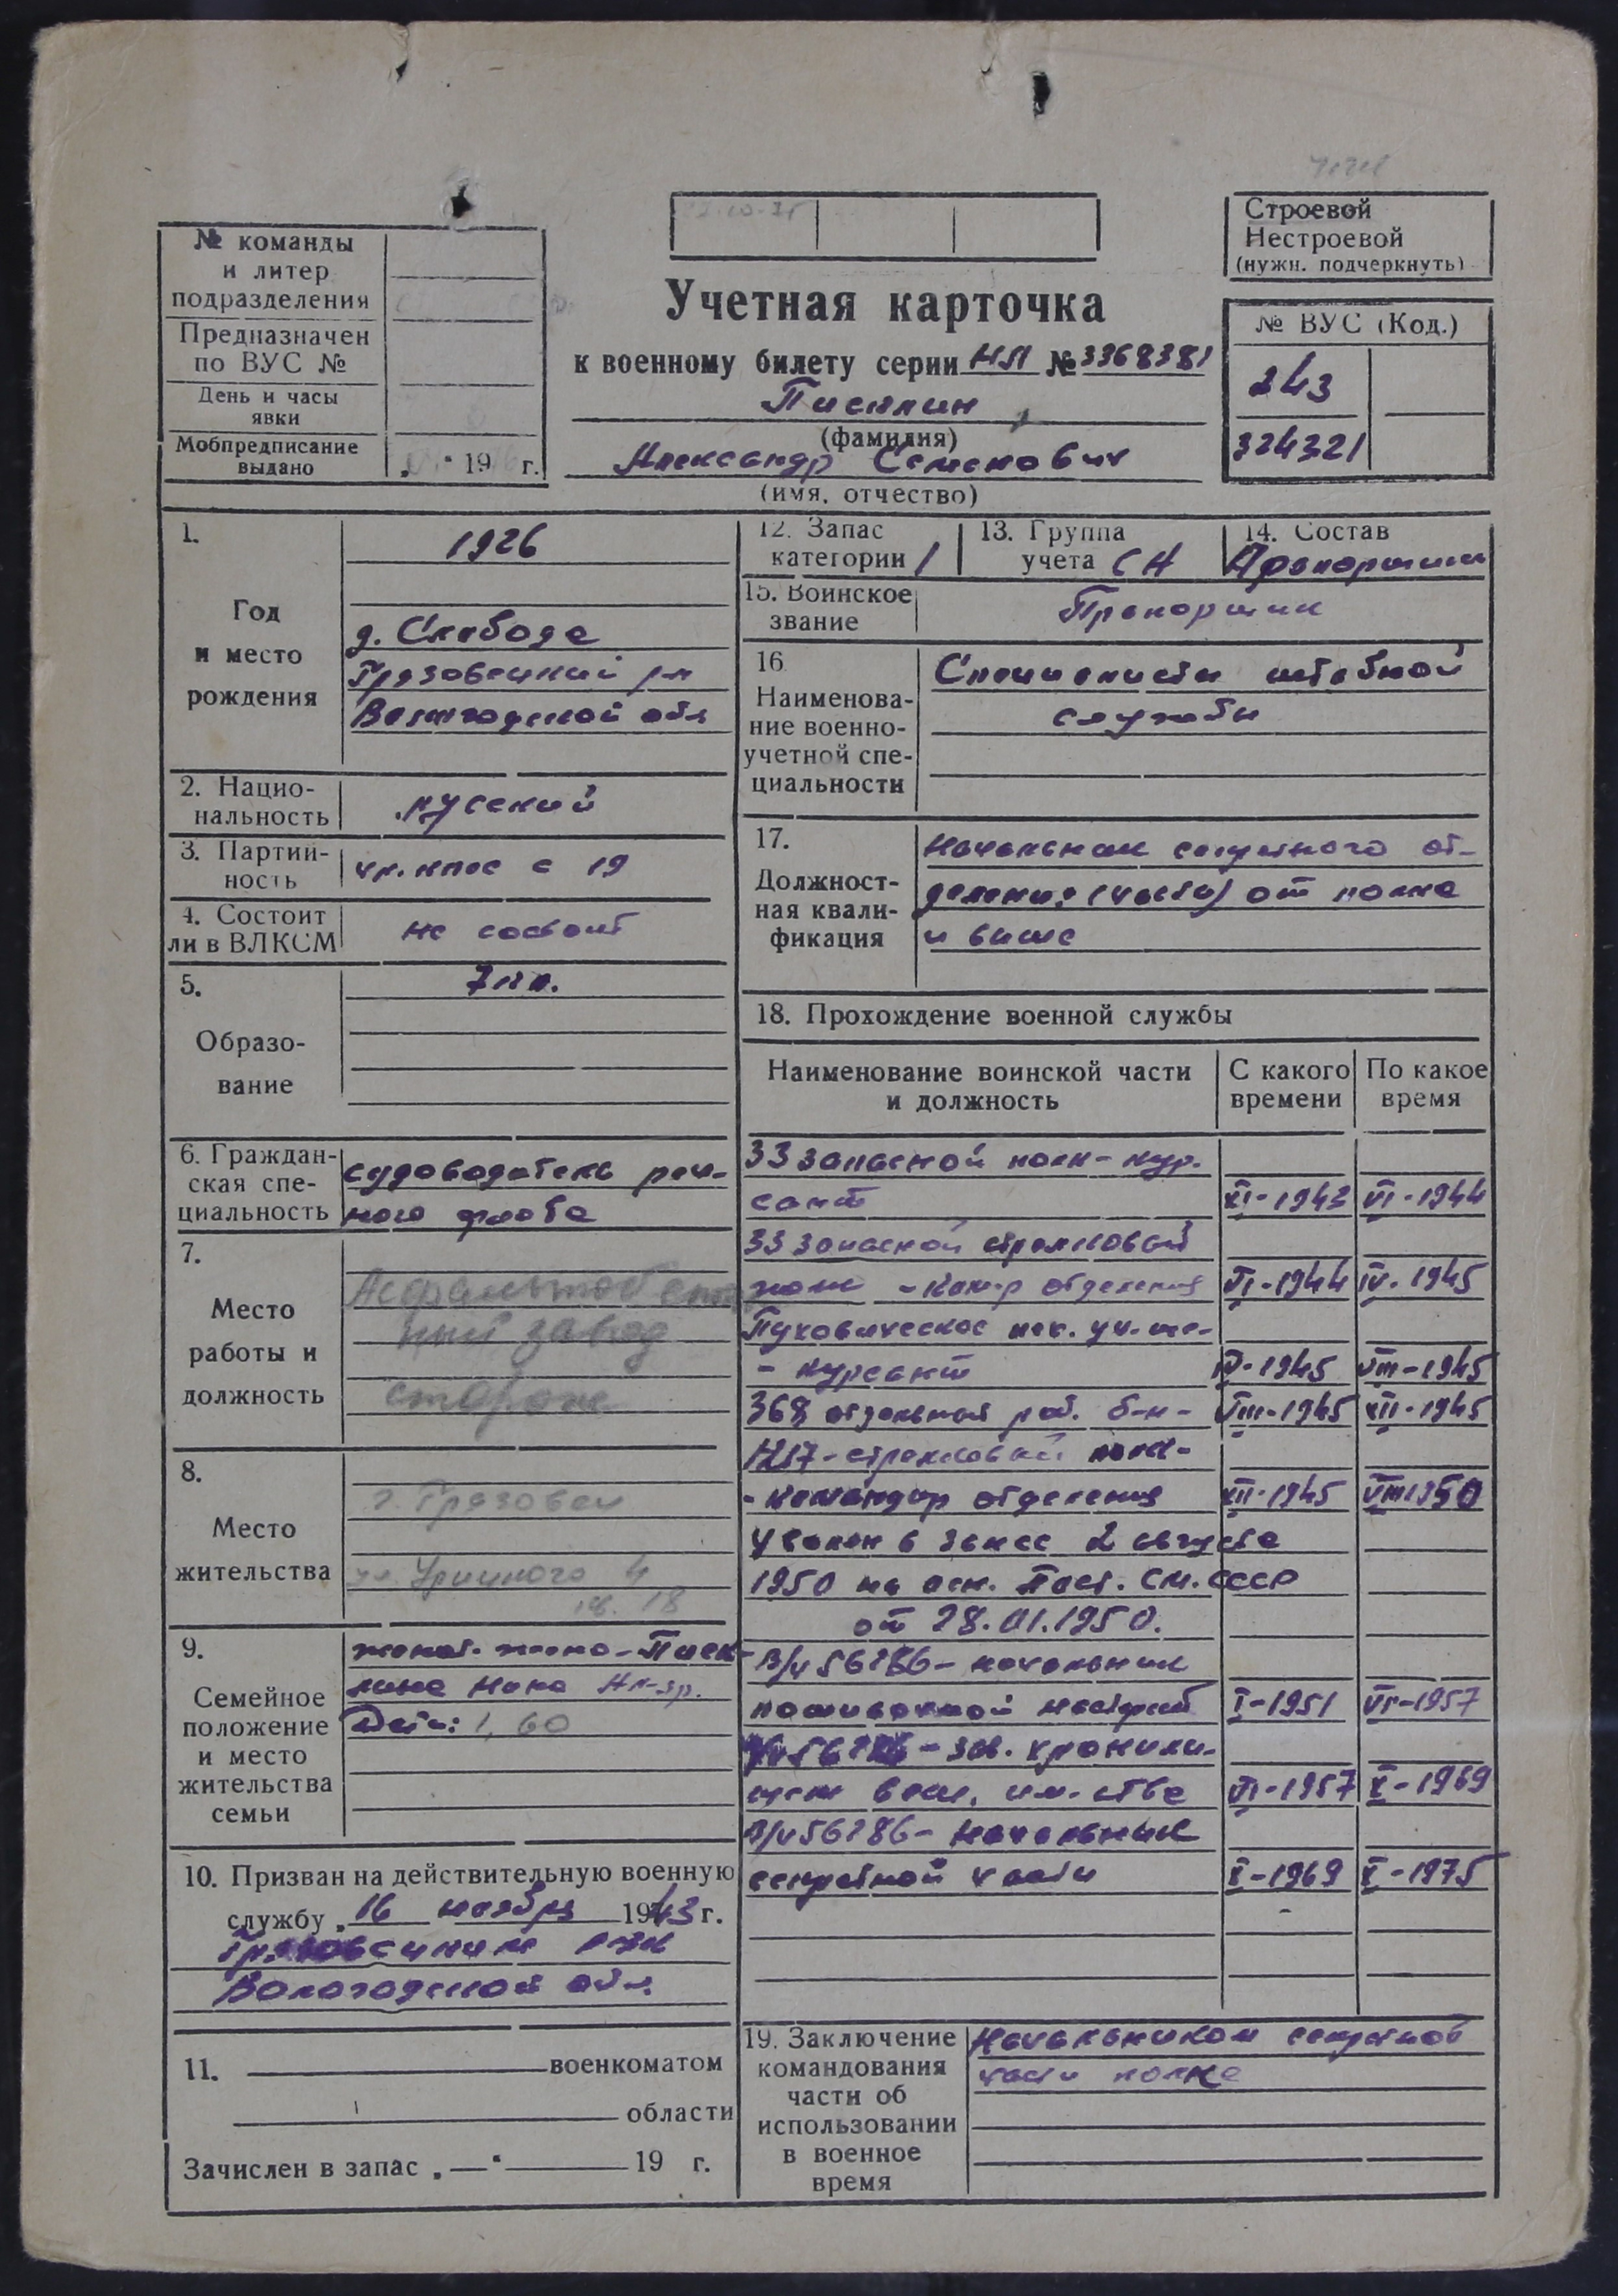 Строевой
Нестроевой
(нужн. подчеркнуть)
№ команды
и литер
подразделения
Предназначен
по ВУС №
День и часы
явки
Мобпредписание
выдано
„ “ 19 г.
Учетная карточка
к военному билету серии НЛ № 3368381
(фамилия)
Александр Семенович
(имя, отчество)
№ ВУС (Код.)
243
324321
1.
Год
и место
рождения
1926
д. Слобода
Грязовецкий р-н
Вологодской обл
2. Нацио-
нальность
русский
3. Партий-
ность
чл. кпсс с 19
4. Состоит
ли в ВЛКСМ
не состоит
5.
Образо-
вание
7 кл.
6. Граждан-
ская спе-
циальность
судоводитель реч-
ного флота
7.
Место
работы и
должность
Асфальтобетон
ный завод
сторож
8.
Место
жительства
г. Грязовец
ул. Урицкого 4
кв. 18
9.
Семейное
положение
и место
жительства
семьи
женат. жена - Писк-
лина Нина Ал-др.
Дети: 1, 60
10. Призван на действительную военную
службу „16 ноября 1943 г.
Грязовецким РВК
Вологодской обл.
11. военкоматом
области
Зачислен в запас „—“ 19 г.
12. Запас
категории 1
13. Группа
учета СА
14. Состав
Прапорщики
15. Воинское
звание
Прапорщик
16
Наименова-
ние военно-
учетной спе-
циальности
Специалисты штабной
службы
17.
Должност-
ная квали-
фикация
Начальник секретного от-
деления (части) от полка
и выше
18. Прохождение военной службы
Наименование воинской части
и должность
С какого
времени
По какое
время
33 запасной полк - кур-
сант XI-1943 VI-1944
33 запасной стрелковый
полк - ком-р отделения VI-1944 IV-1945
Пуховическое пех. уч-ще-
- курсант IV-1945 VIII-1945
368 отдельный раб. б-н - VIII-1945 XII-1945
стрелковый полк -
- командир отделения XII-1945 VIII 1950
Уволен в запас 2 августа
1950 на осн. Пост. СМ. СССР
от 28.01.1950.
В/ч 56286 - начальник
пошивочной мастерской I-1951 VI-1957
В/ч 56286 - зав. хранили-
щем вещ. им-ства VI-1957 X-1969
В/ч 56286 - начальник
секретной части X-1969 X-1975
19. Заключение
командования
части об
использовании
в военное
время
Начальником секретной
части полка